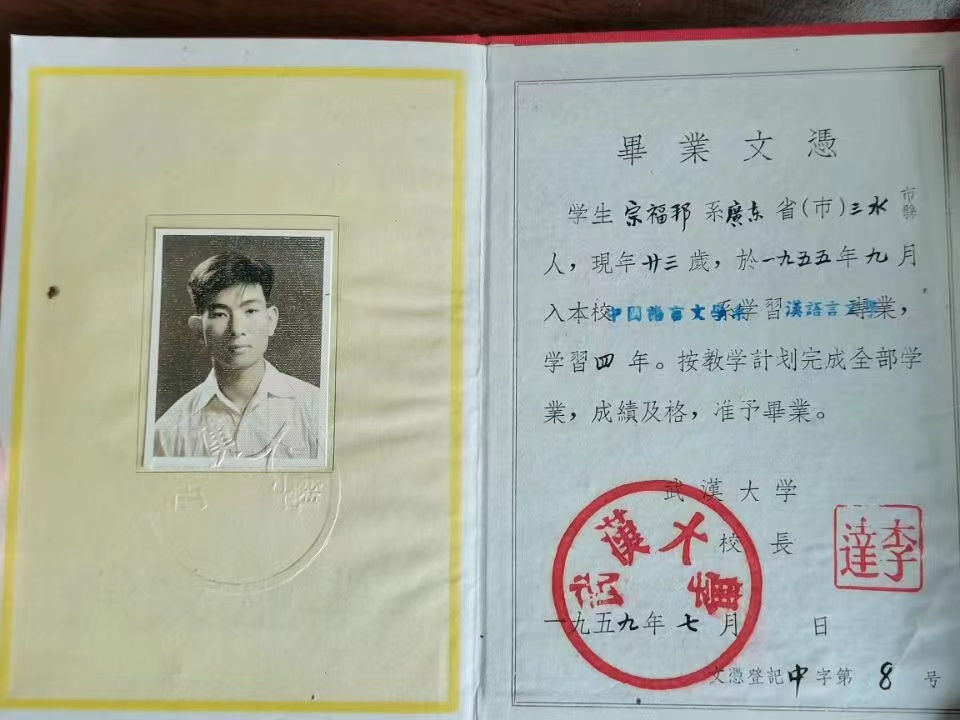 畢業文憑
学生宗福邦系廣东省(市)三水市縣
人，現年廿三歲，於一九五五年九月
入本校中國語言文學系学習漢語言文學專業，
学習四年。按教学計划完成全部学
業，成績及格，准予畢業。
武漢大学
校長
李達
一九五九年七月 日
文憑登記中字第8号